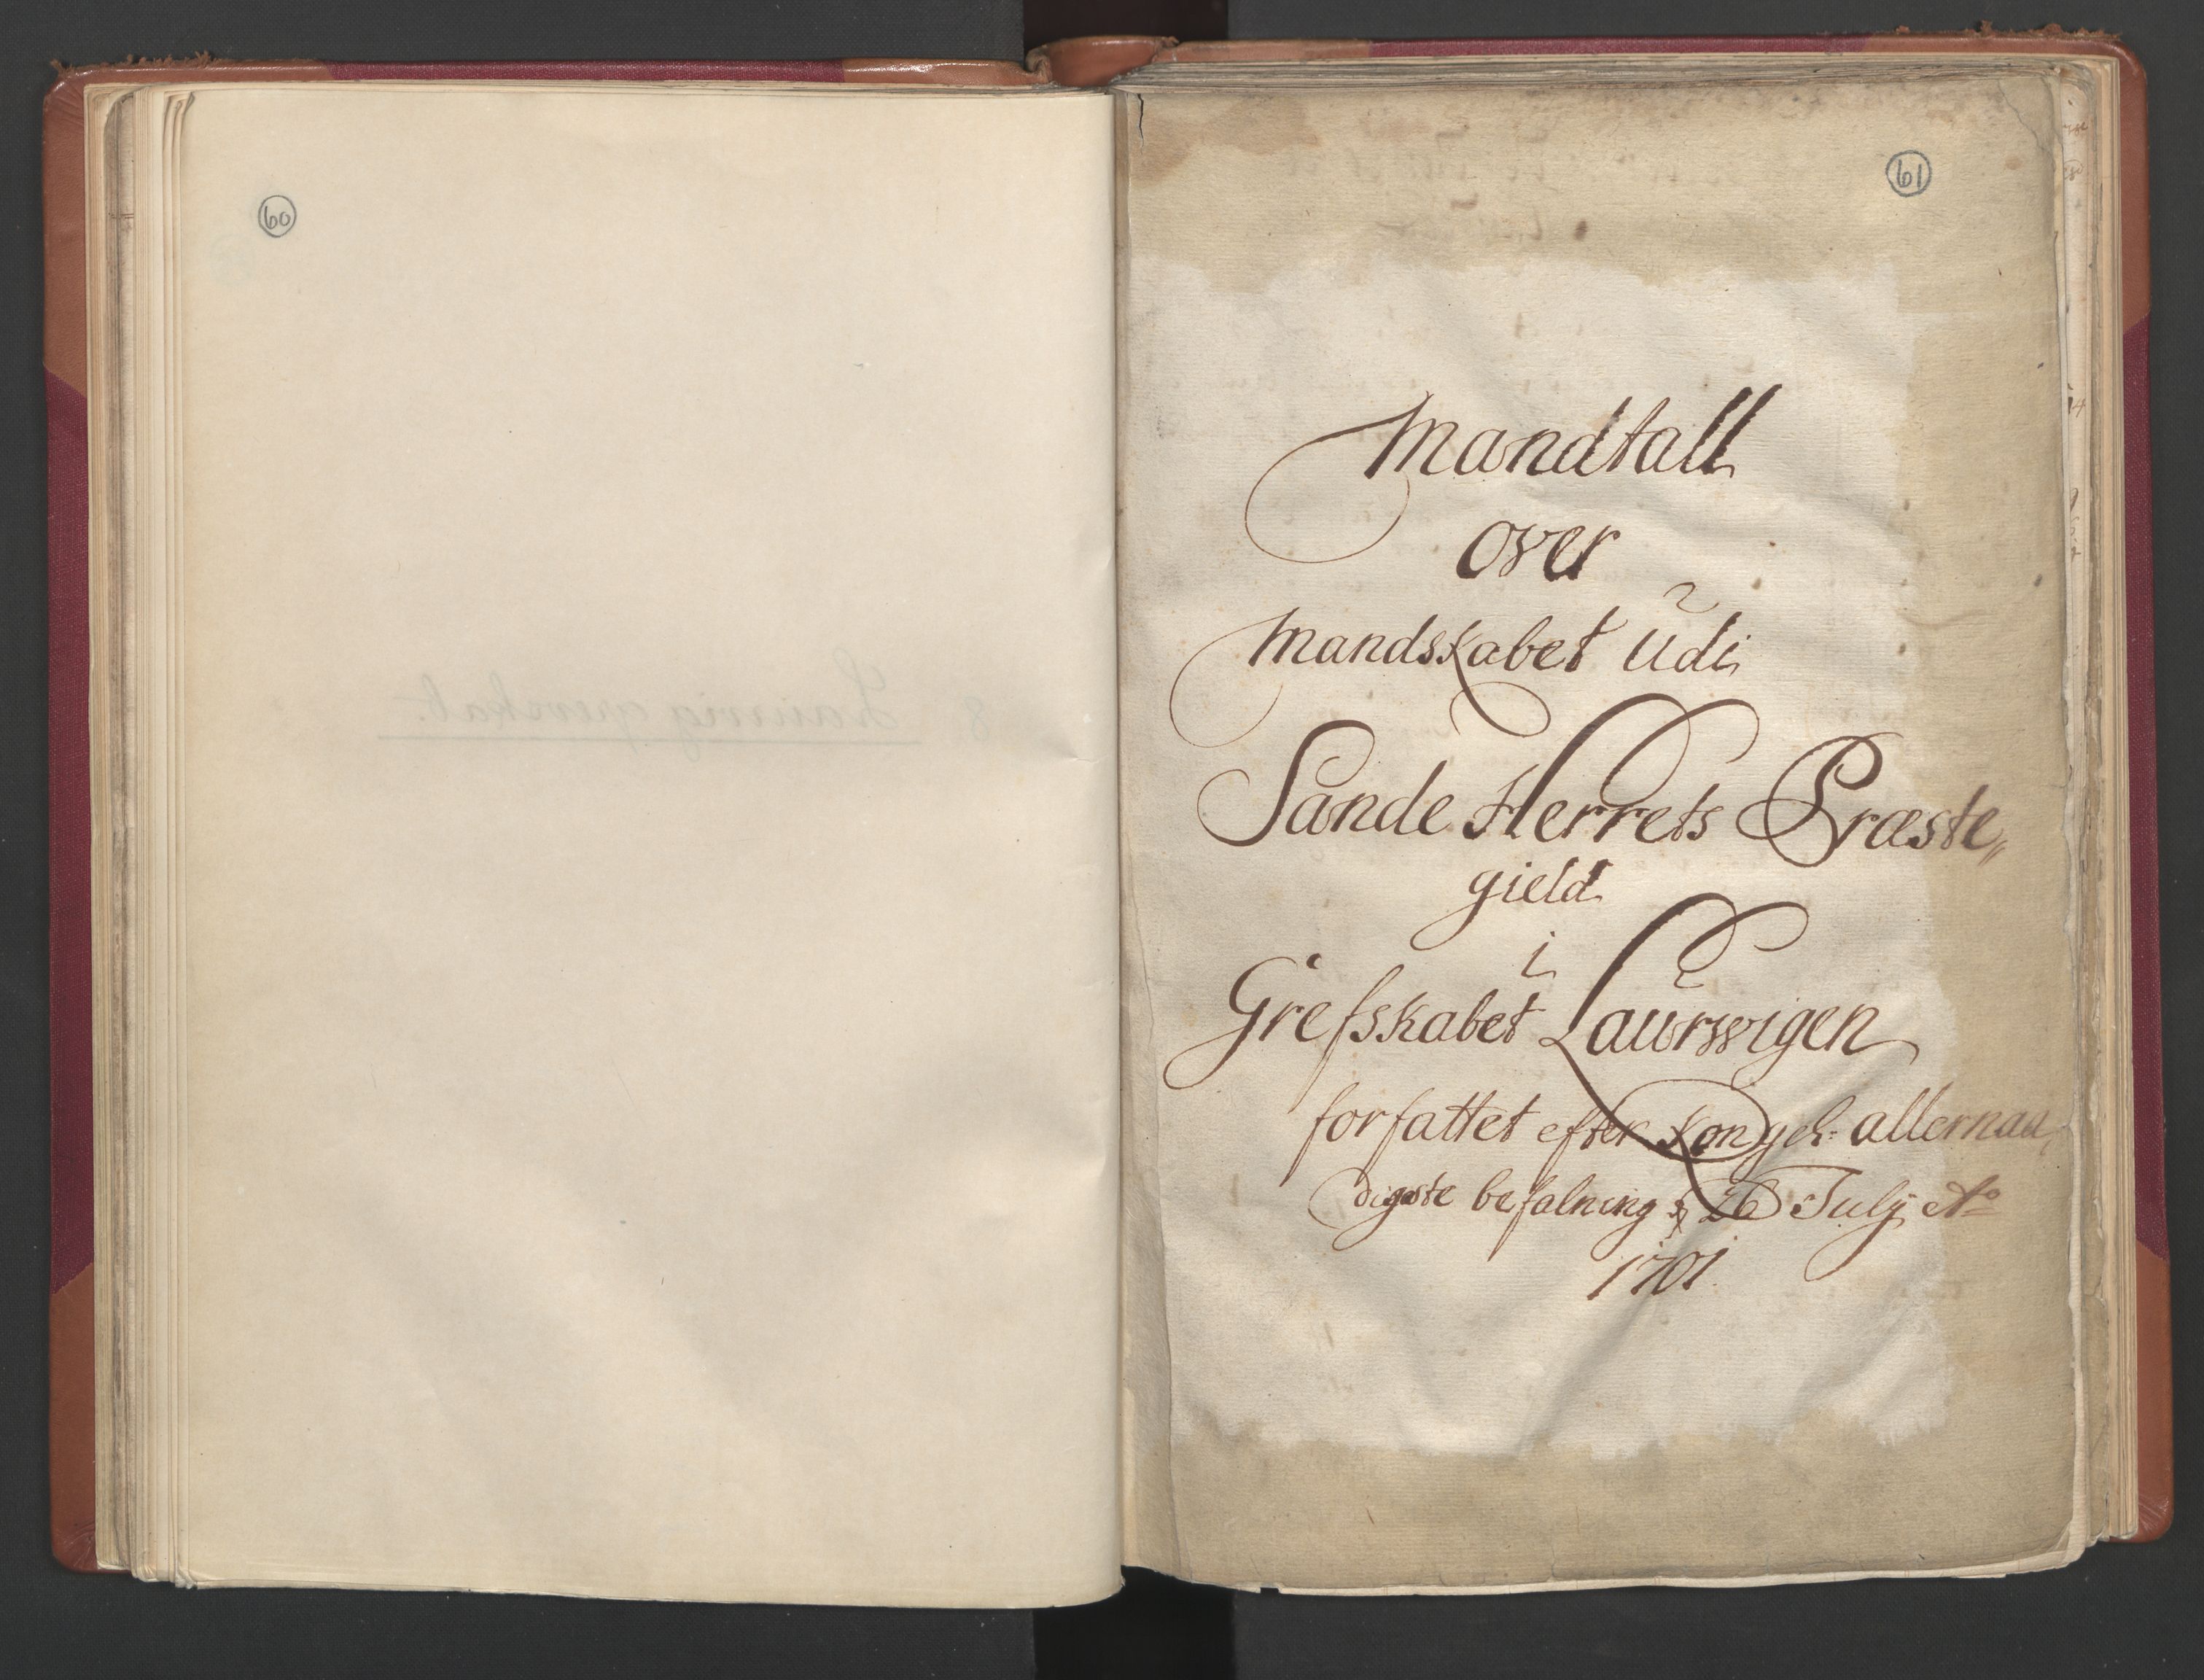 60
61
Mandtall
over
Mandskabet udi
Sande Herrets Præste„
gield
i
Grefskabet Laurwigen
forfattet efter Kongel: allernaa,
digste befalning 26 July Ao
1701.